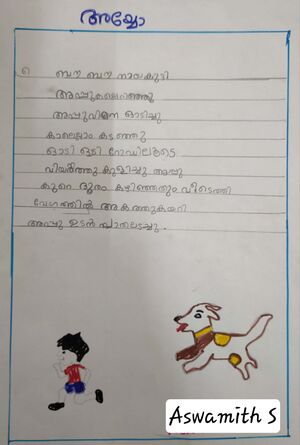 അയ്യോ
ബൗ ബൗ നായകുട്ടി
അപ്പുകല്ലെറിഞ്ഞു
അപ്പുവിനെ ഓടിച്ചു
കാലെല്ലാം കുഴഞ്ഞു
ഓടി ഓടി റോഡിലൂടെ
വിയർത്തു കുളിച്ചു അപ്പു
കുറെ ദൂരം കഴിഞ്ഞതും വീടെത്തി
വേഗത്തിൽ അകത്തുകയറി
അപ്പു ഉടൻ വാതലടച്ചു.
Aswamith S